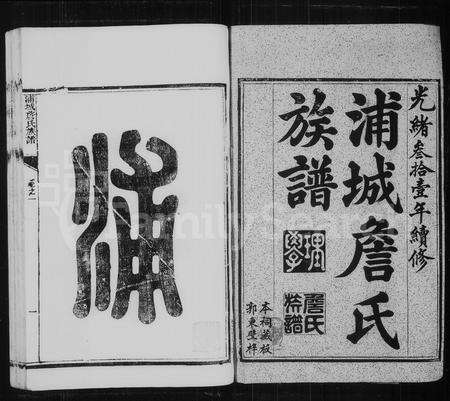 光緒叄拾壹年續修
浦城詹氏
族譜
詹氏
族譜
本祠藏板
郭東壁梓
浦
浦城詹氏族譜
卷之一
一
FamilySearch